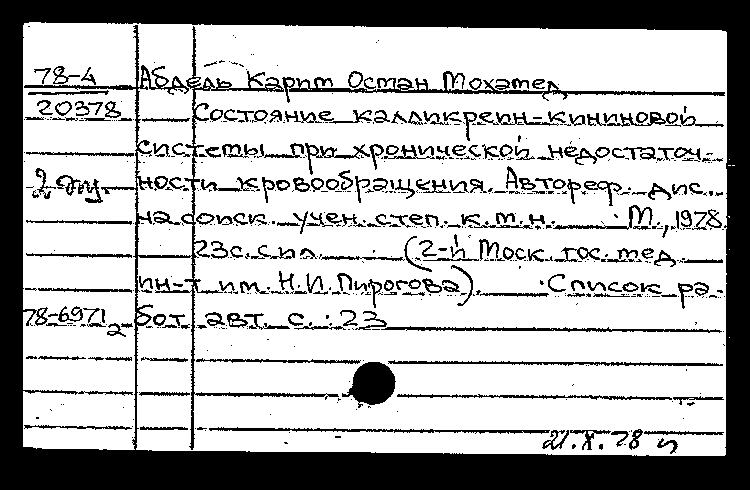 78-4 Абдель Карим Осман Мохамед
20378 Состояние калликреин-кининовой
системы при хронической недостаточ-
2 ности кровообращения. Автореф. дис.
на соиск. учен. степ. к.м.н. М., 1978.
23с. с ил. (2-й Моск. гос. мед.
ин-т им. Н.И. Пирогова). Список ра-
78-6971 бот авт. с.: 23
21.X.78